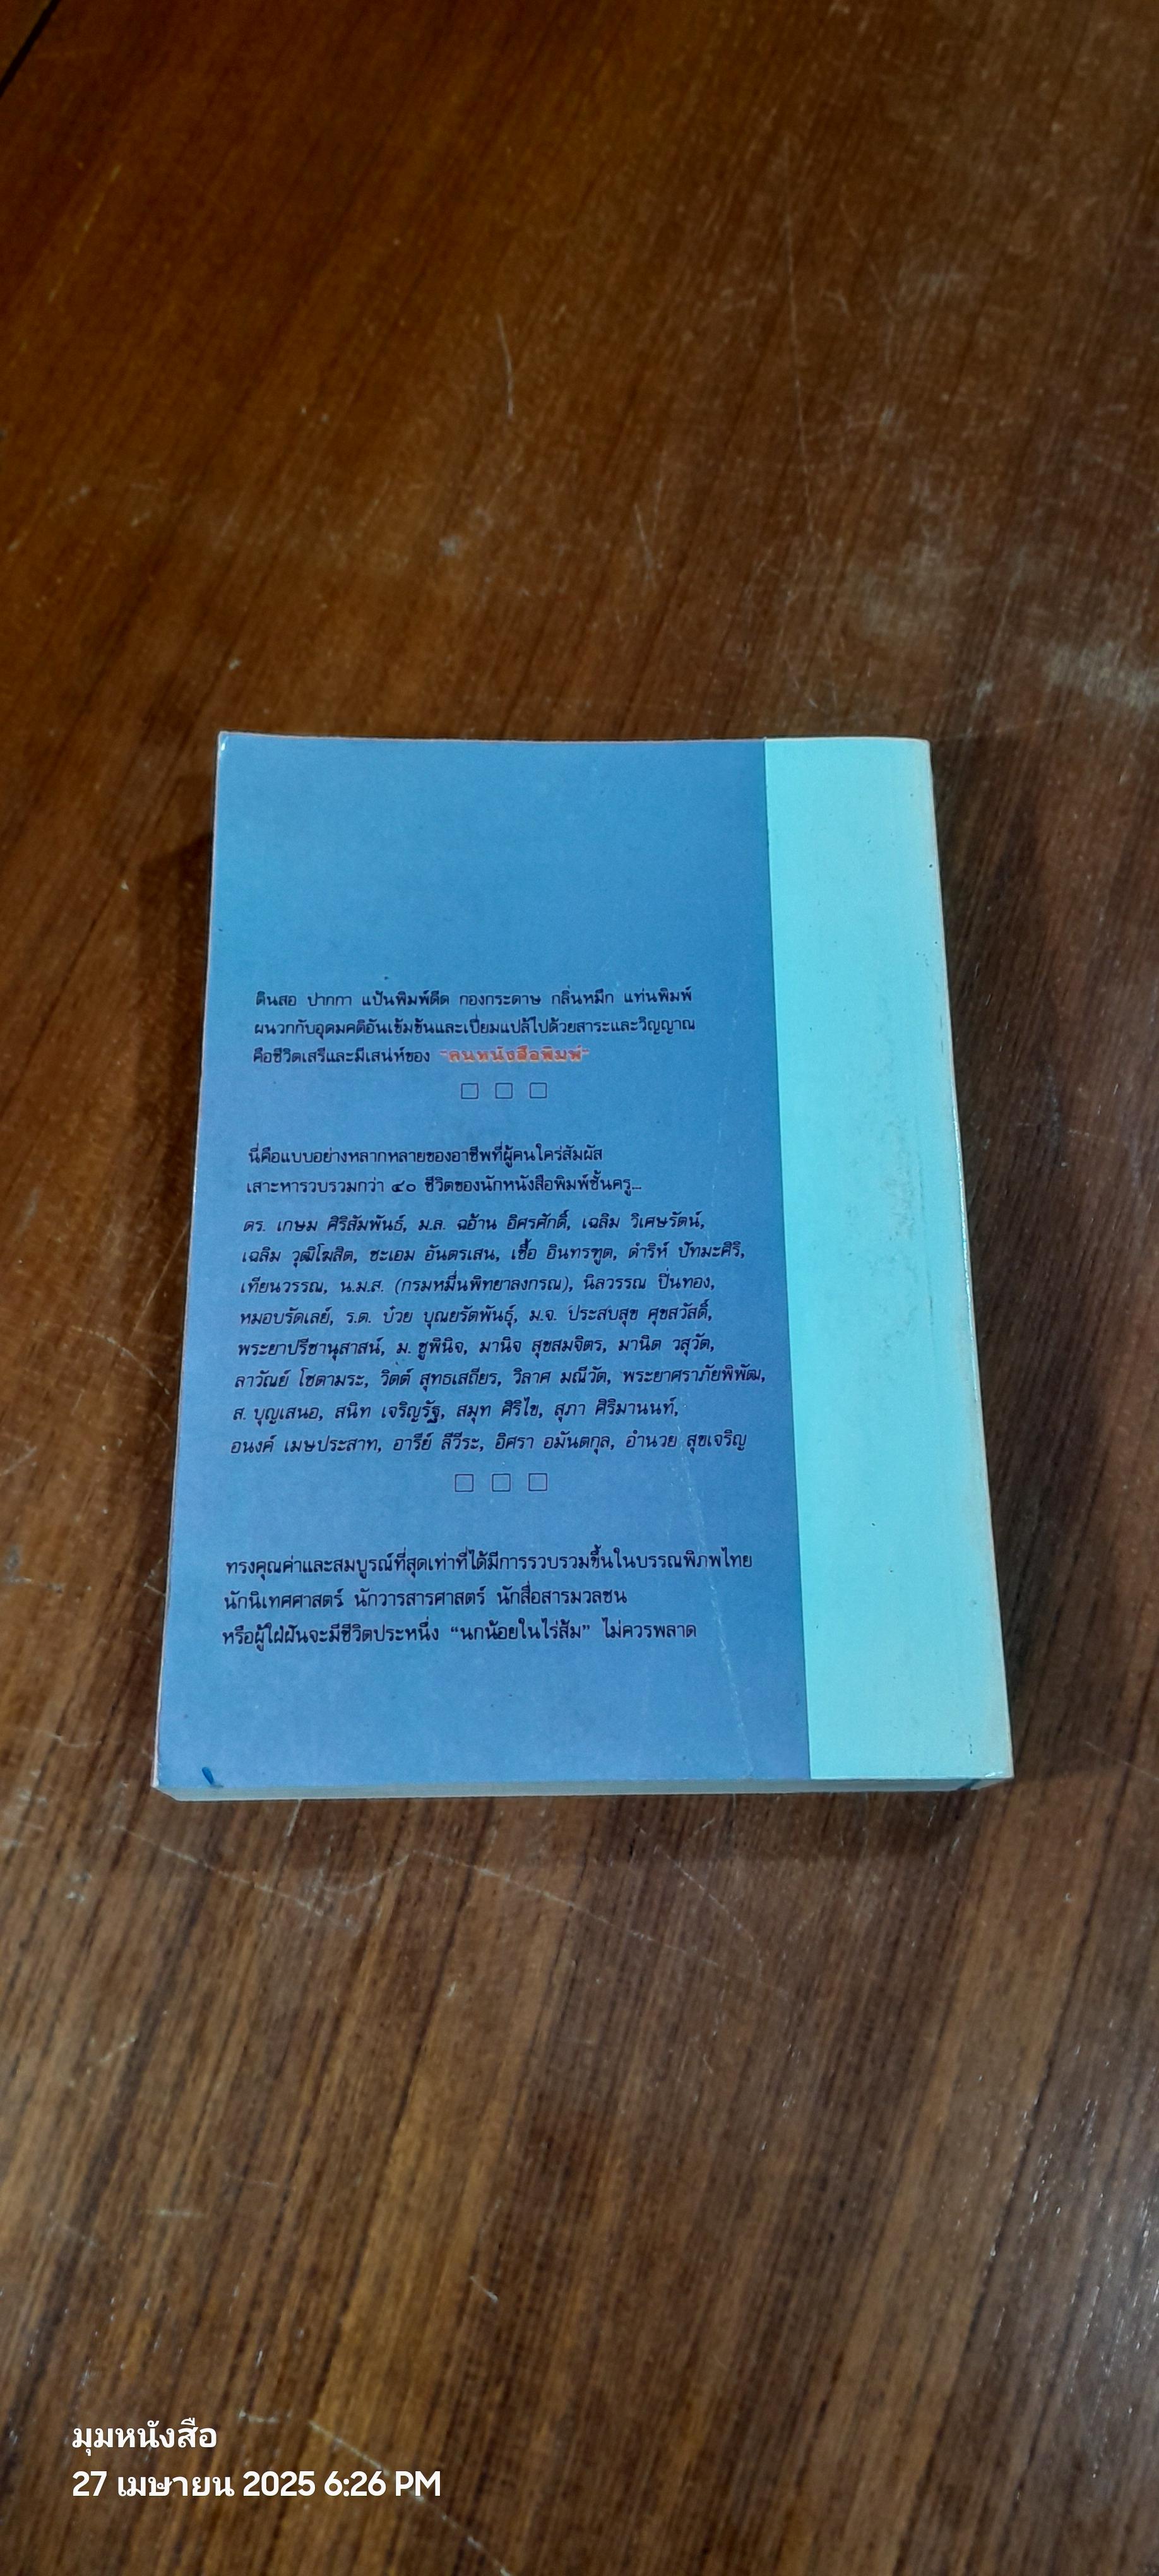 ดินสอ ปากกา แป้นพิมพ์ดีด กองกระดาษ กลิ่นหมึก แท่นพิมพ์
ผนวกกับอุดมคติอันเข้มข้นและเปี่ยมแปล้ไปด้วยสาระและวิญญาณ
คือชีวิตเสรีและมีเสน่ห์ของ "คนหนังสือพิมพ์"
นี่คือแบบอย่างหลากหลายของอาชีพที่ผู้คนใคร่สัมผัส
เสาะหารวบรวมกว่า ๔๐ ชีวิตของนักหนังสือพิมพ์ชั้นครู...
ดร. เกษม ศิริสัมพันธ์, ม.ล. ฉอ้าน อิศรศักดิ์, เฉลิม วิเศษรัตน์,
เฉลิม วุฒิโฆสิต, ชะเอม อันตรเสน, เชื้อ อินทรฑูต, ดำริห์ ปัทมะศิริ,
เทียนวรรณ, น.ม.ส. (กรมหมื่นพิทยาลงกรณ), นิลวรรณ ปิ่นทอง,
หมอบรัดเลย์, ร.ต. บ๋วย บุณยรัตพันธุ์, ม.จ. ประสบสุข ศุขสวัสดิ์,
พระยาปรีชานุสาสน์, ม. ชูพินิจ, มานิจ สุขสมจิตร, มานิต วสุวัต,
ลาวัณย์ โชตามระ, วิตต์ สุทธเสถียร, วิลาศ มณีวัต, พระยาศราภัยพิพัฒ,
ส. บุญเสนอ, สนิท เจริญรัฐ, สมุท ศิริไข, สุภา ศิริมานนท์,
อนงค์ เมษประสาท, อารีย์ ลีวีระ, อิศรา อมันตกุล, อำนวย สุขเจริญ
ทรงคุณค่าและสมบูรณ์ที่สุดเท่าที่ได้มีการรวบรวมขึ้นในบรรณพิภพไทย
นักนิเทศศาสตร์ นักวารสารศาสตร์ นักสื่อสารมวลชน
หรือผู้ใฝ่ฝันจะมีชีวิตประหนึ่ง “นกน้อยในไร่ส้ม” ไม่ควรพลาด
มุมหนังสือ
27 เมษายน 2025 6:26 PM